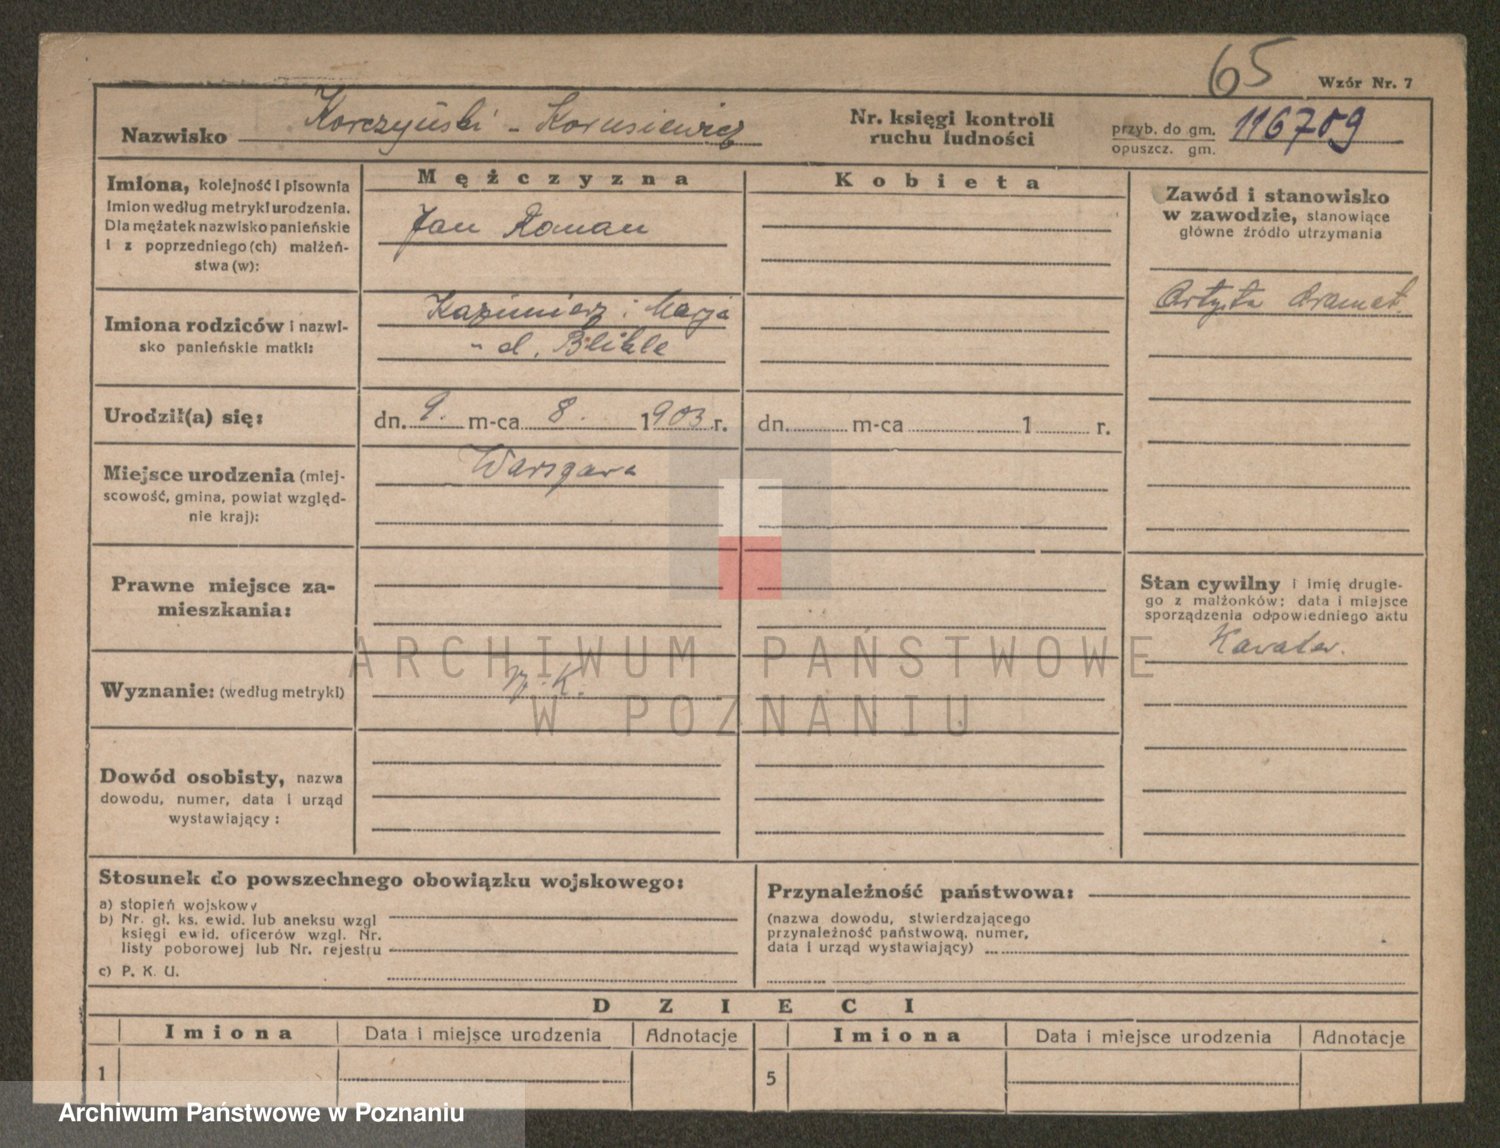 65
Wzór Nr. 7
Nazwisko Korczyński - Korusiewicz
Nr. księgi kontroli
ruchu ludności
przyb. do gm.
opuszcz. gm.
116709
Imiona, kolejność i pisownia
imion według metryki urodzenia.
Dla mężatek nazwisko panieńskie
i z poprzedniego (ch) małżeń-
stwa (w):
Mężczyzna
Jan Roman
Kobieta
Zawód i stanowisko
w zawodzie, stanowiące
główne źródło utrzymania
Artysta dramat.
Imiona rodziców i nazwi-
sko panieńskie matki:
Kazimierz i Marja
d. Blikle
Urodził(a) się:
dn. 9. m-ca 8. 1903 r.
dn. m-ca 1 r.
Miejsce urodzenia (miej-
scowość, gmina, powiat względ-
nie kraj):
Warszawa
Prawne miejsce za-
mieszkania:
Stan cywilny i imię drugie-
go z małżonków; data i miejsce
sporządzenia odpowiedniego aktu
Kawaler.
Wyznanie: (według metryki)
rz. K.
ARCHIWUM PAŃSTWOWE
W POZNANIU
Dowód osobisty, nazwa
dowodu, numer, data i urząd
wystawiający:
Stosunek do powszechnego obowiązku wojskowego:
a) stopień wojskowy
b) Nr. gł. ks. ewid. lub aneksu wzgl
księgi ewid. oficerów wzgl. Nr.
listy poborowej lub Nr. rejestru
c) P. K. U.
Przynależność państwowa:
(nazwa dowodu, stwierdzającego
przynależność państwową, numer,
data i urząd wystawiający)
DZIECI
Imiona Data i miejsce urodzenia Adnotacje Imiona Data i miejsce urodzenia Adnotacje
1 5
Archiwum Państwowe w Poznaniu